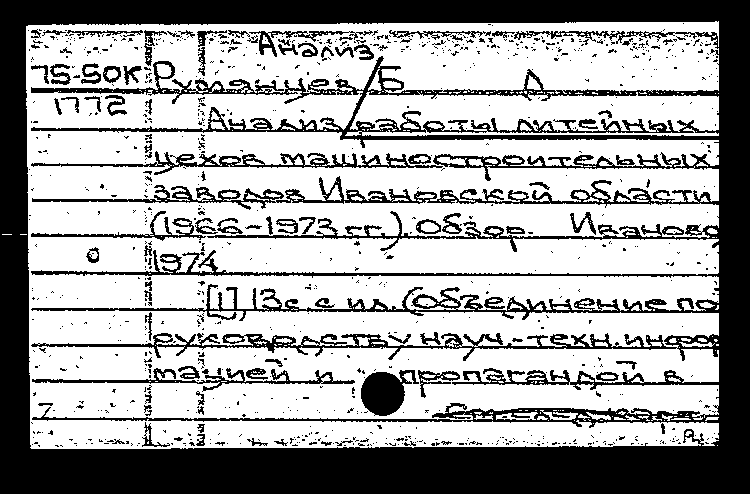 Анализ
75-50К Румянцев Б Д
1772
Анализ работы литейных
цехов машиностроительных
заводов Ивановской области
(1966-1973 гг.). Обзор. Иваново
1974
[1], 13с. с ил. (Объединение по
руководству науч.-техн. инфор
мацией и пропагандой в
7 См. след. карт.